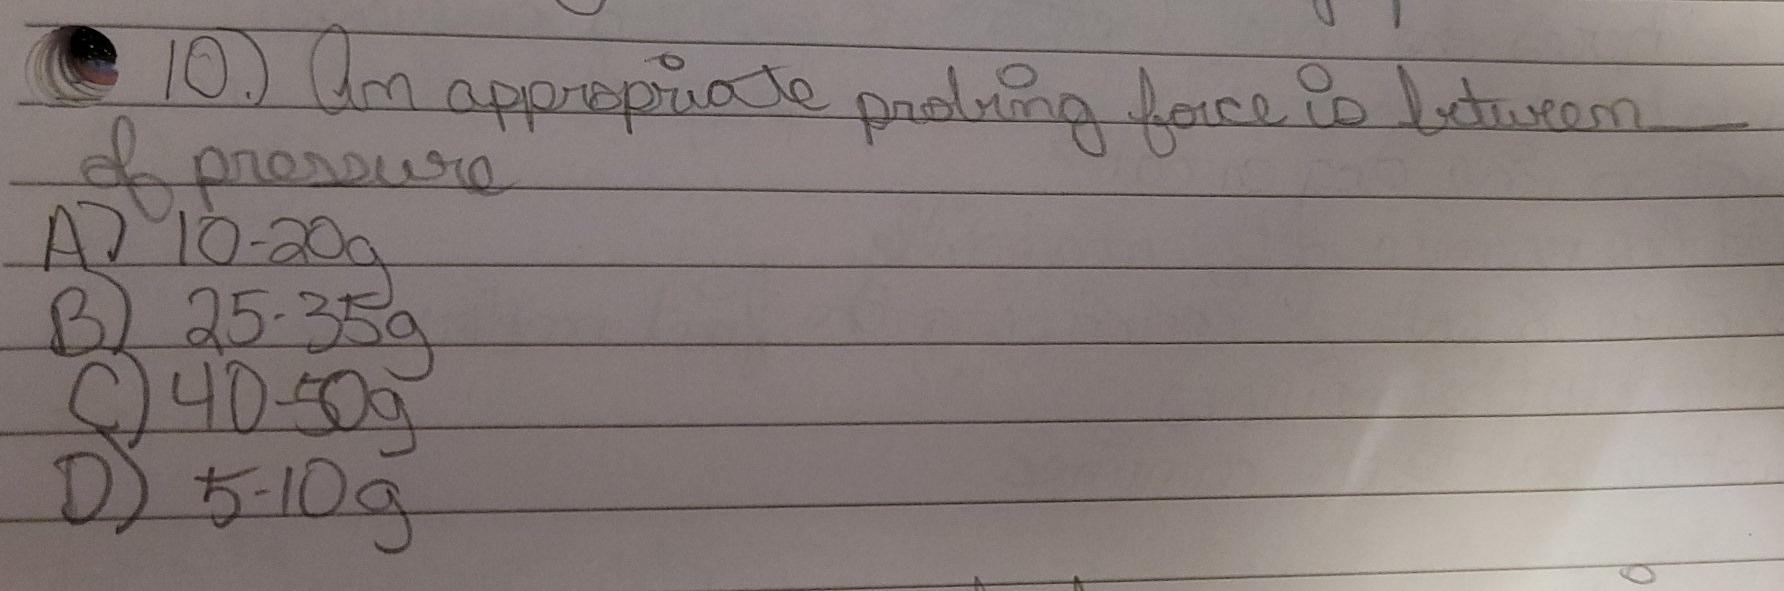 10.) An appropriate probing force is between ___
of pressure
A) 10-20g
B) 25-35g
C) 40-50g
D) 5-10g